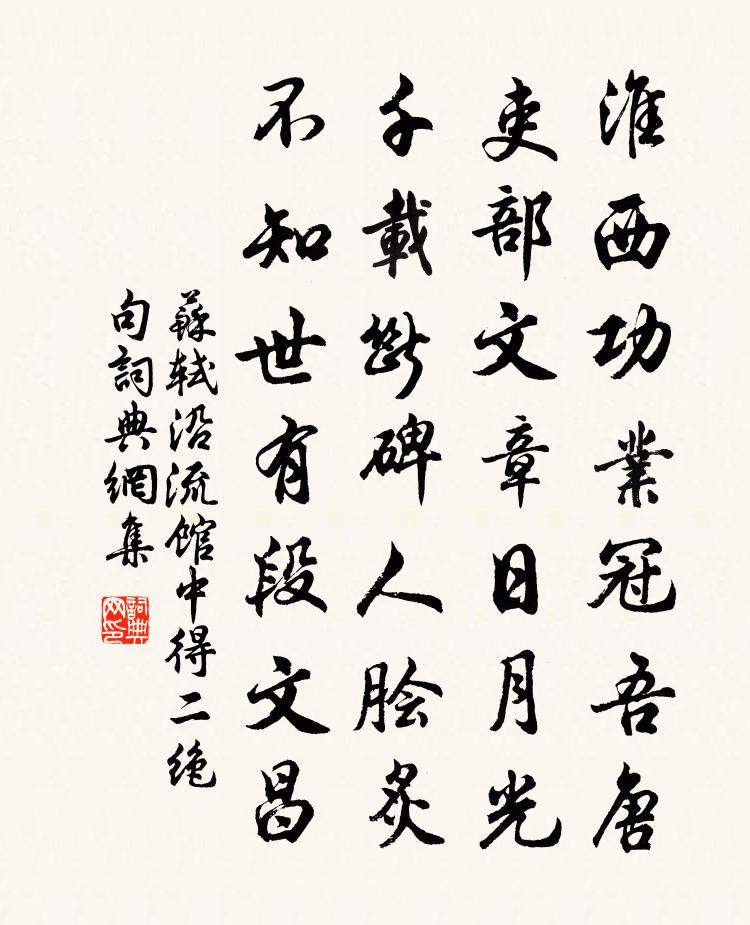 淮西功業冠吾唐
吏部文章日月光
千載斷碑人膾炙
不知世有段文昌
蘇軾沿流館中得二絶
句詞典網集
詞典
网印